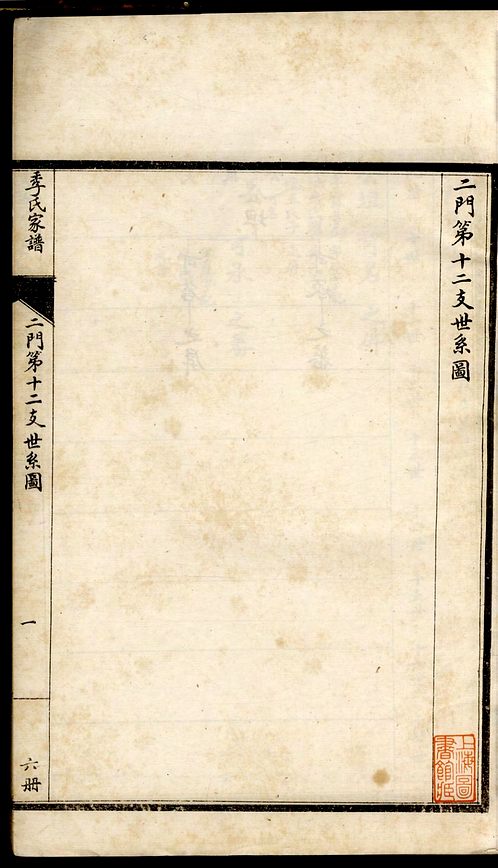 二門第十二支世系圖
季氏家譜
二門第十二支世系圖
一
六册
上海圖
書館